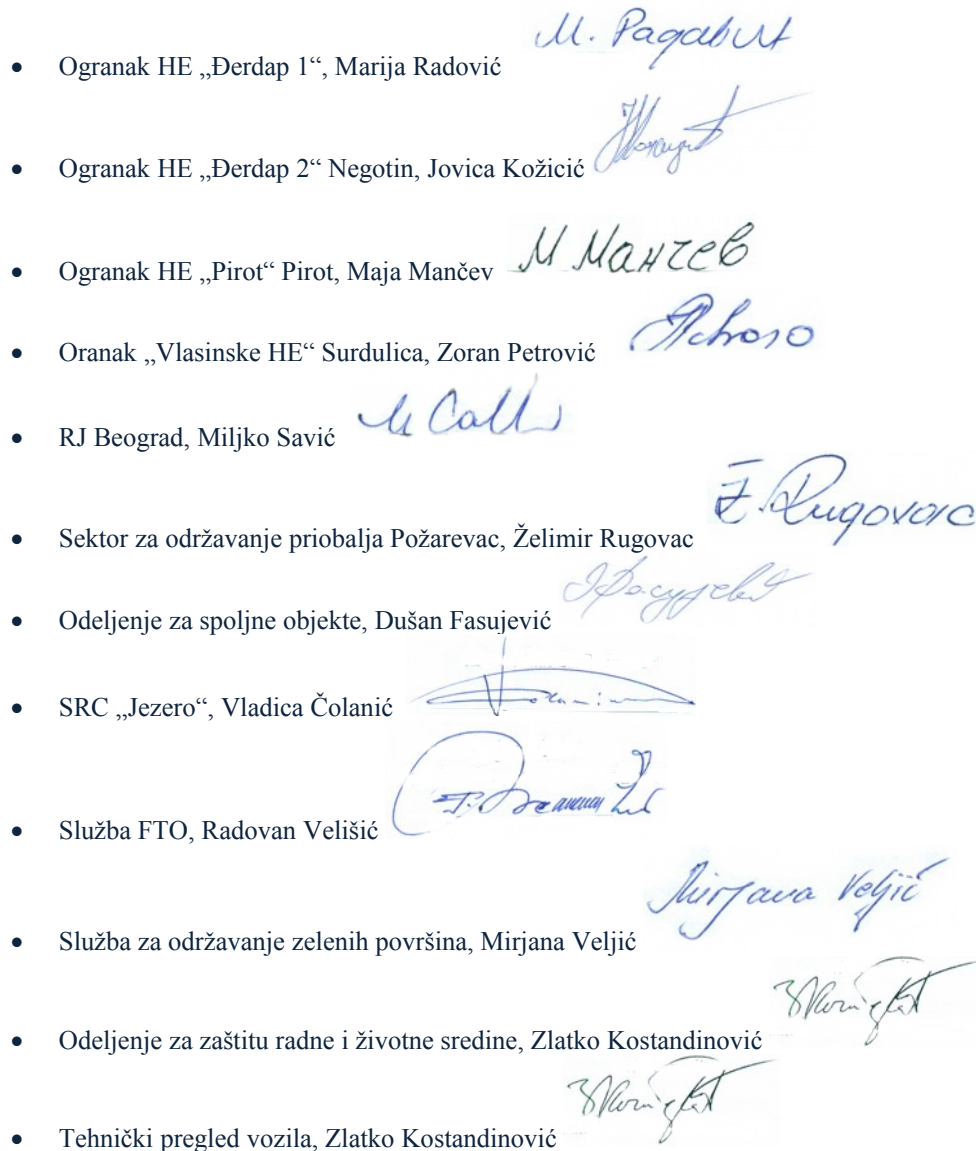 М. Радовић
• Ogranak HE „Đerdap 1“, Marija Radović
• Ogranak HE „Đerdap 2“ Negotin, Jovica Kožicić
• Ogranak HE „Pirot“ Pirot, Maja Mančev М Манчев
• Oranak „Vlasinske HE“ Surdulica, Zoran Petrović
• RJ Beograd, Miljko Savić
• Sektor za održavanje priobalja Požarevac, Želimir Rugovac
• Odeljenje za spoljne objekte, Dušan Fasujević
• SRC „Jezero“, Vladica Čolanić
• Služba FTO, Radovan Velišić
Mirjana Veljić
• Služba za održavanje zelenih površina, Mirjana Veljić
• Odeljenje za zaštitu radne i životne sredine, Zlatko Kostandinović
• Tehnički pregled vozila, Zlatko Kostandinović